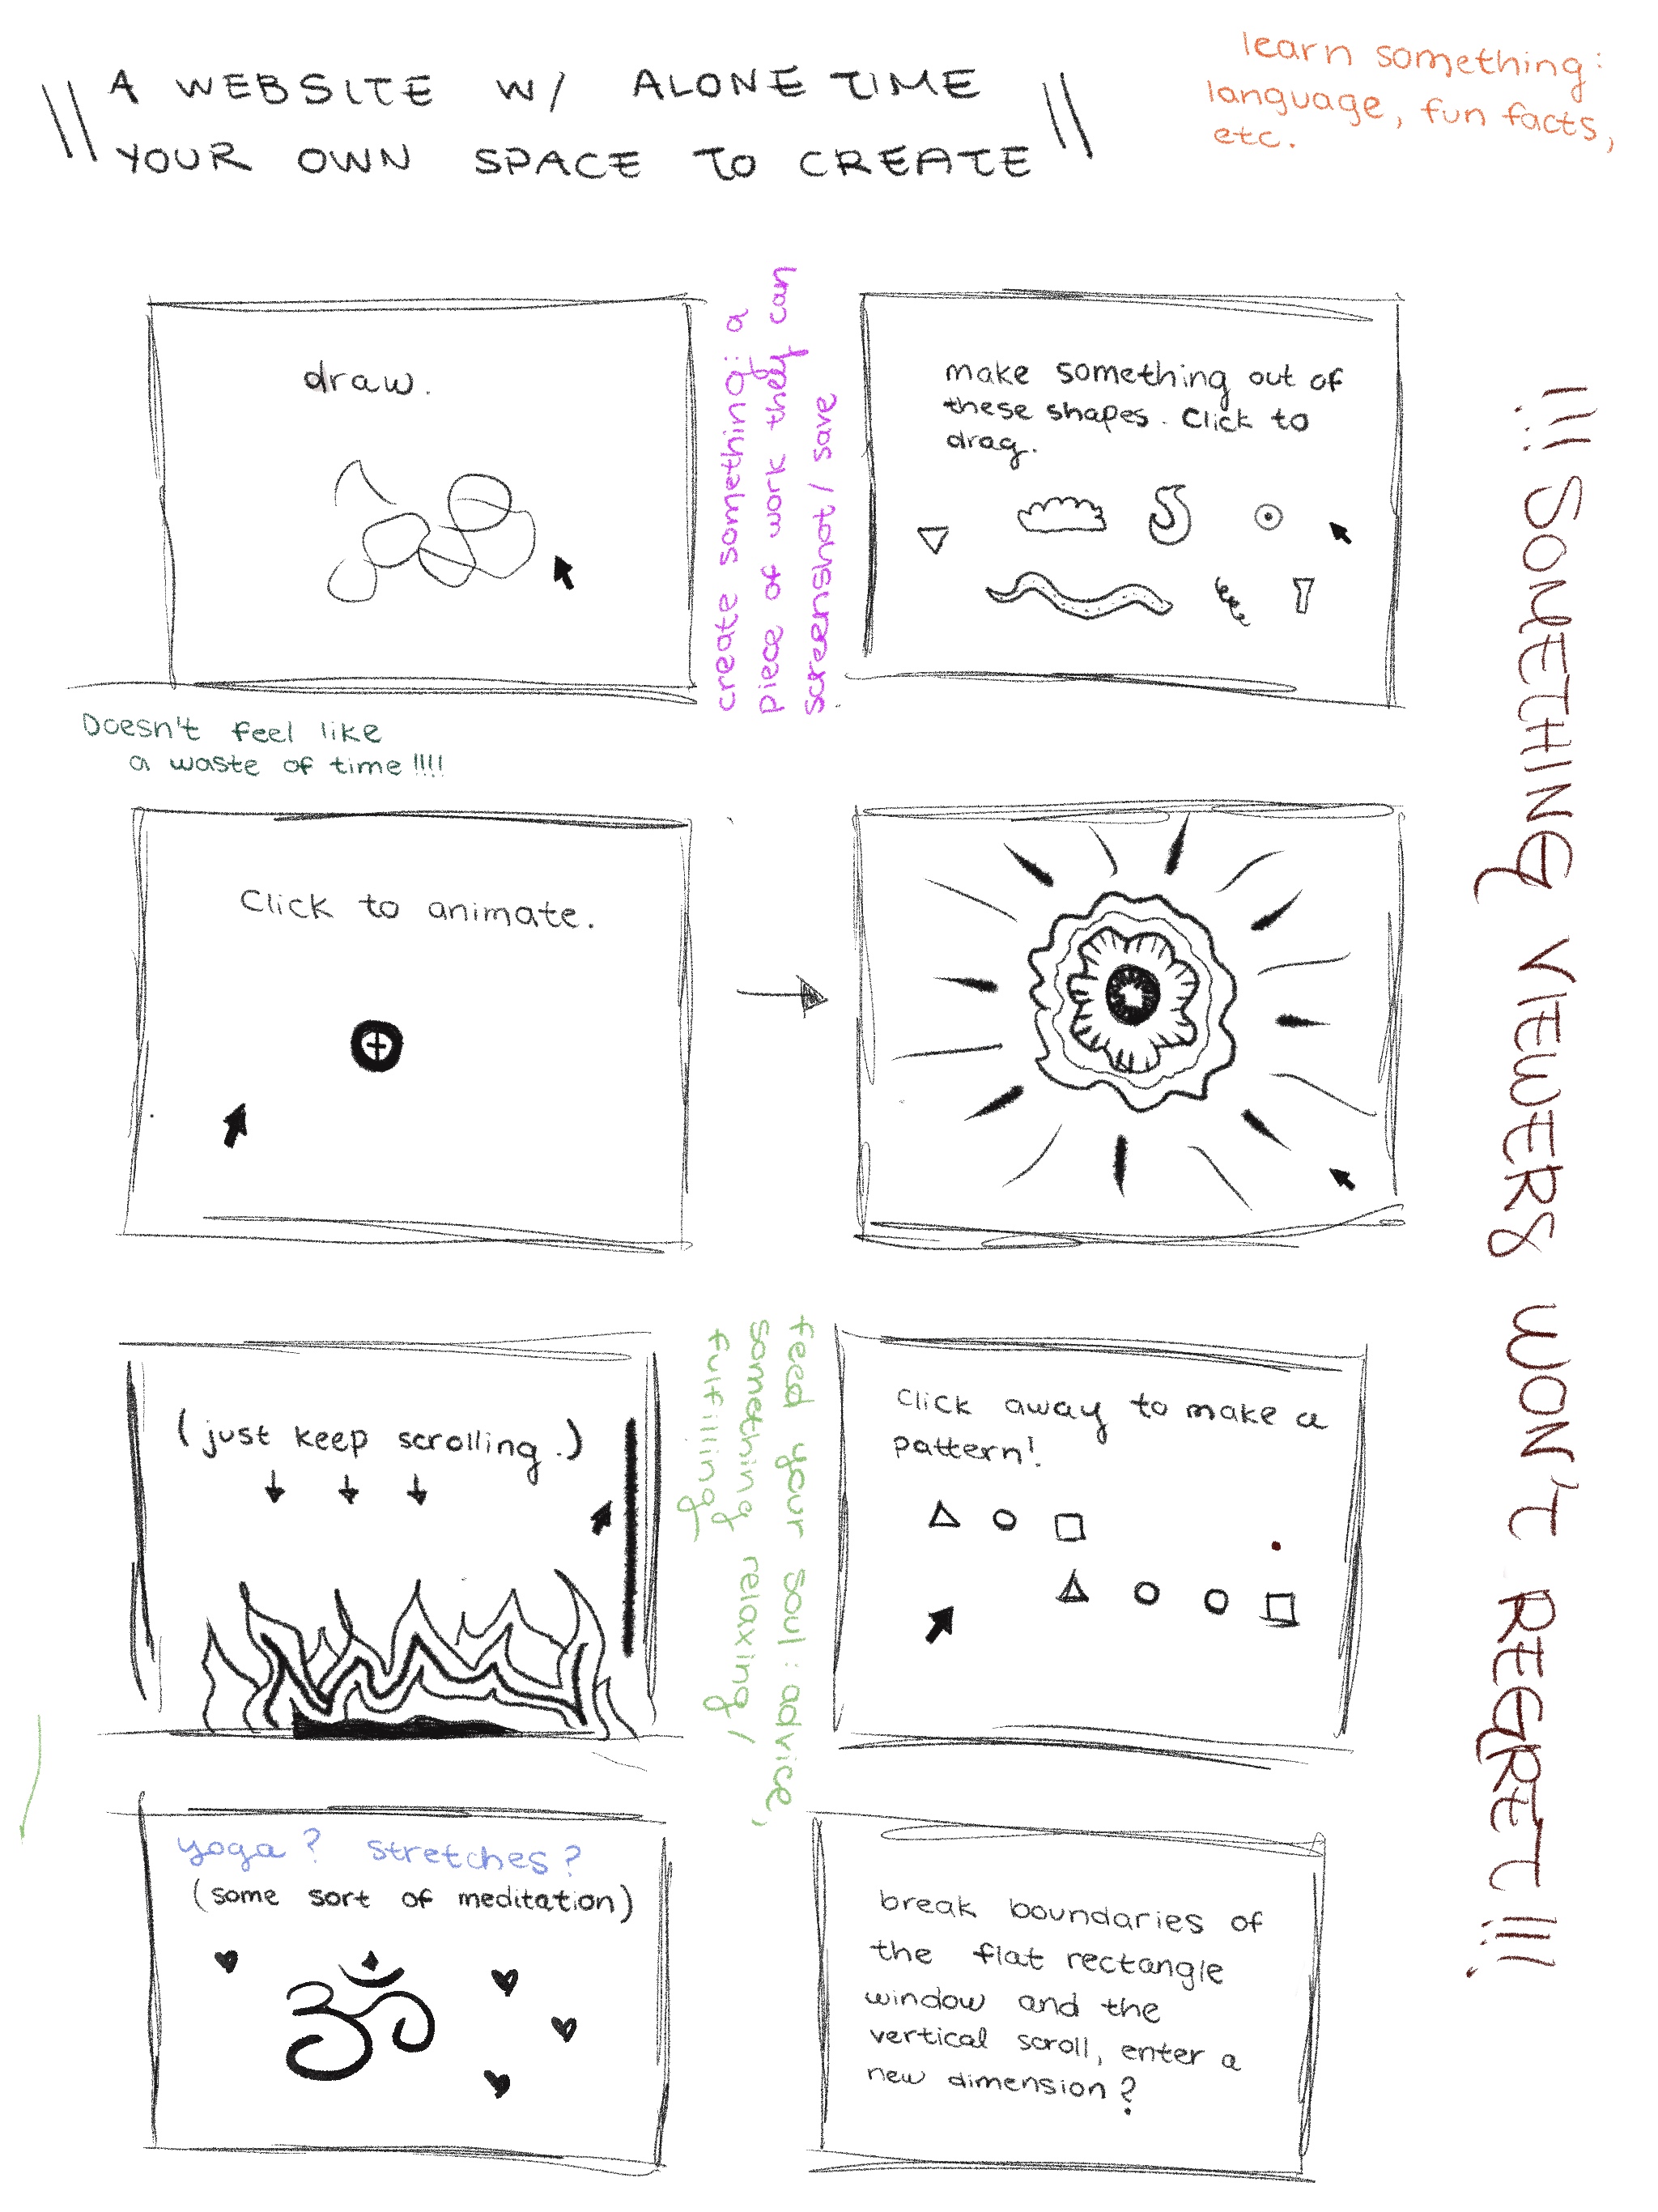 A WEBSITE W/ ALONE TIME
YOUR OWN SPACE TO CREATE
learn something:
language, fun facts,
etc.
draw.
create something: a
piece of work they can
screenshot / save
make something out of
these shapes. Click to
drag.
Doesn't feel like
a waste of time!!!!
Click to animate.
(just keep scrolling.)
feed your soul: advice,
something relaxing /
fulfilling
Click away to make a
pattern!
yoga? stretches?
(some sort of meditation)
ॐ
break boundaries of
the flat rectangle
window and the
vertical scroll, enter a
new dimension?
!!! SOMETHING VIEWERS WON'T REGRET!!!